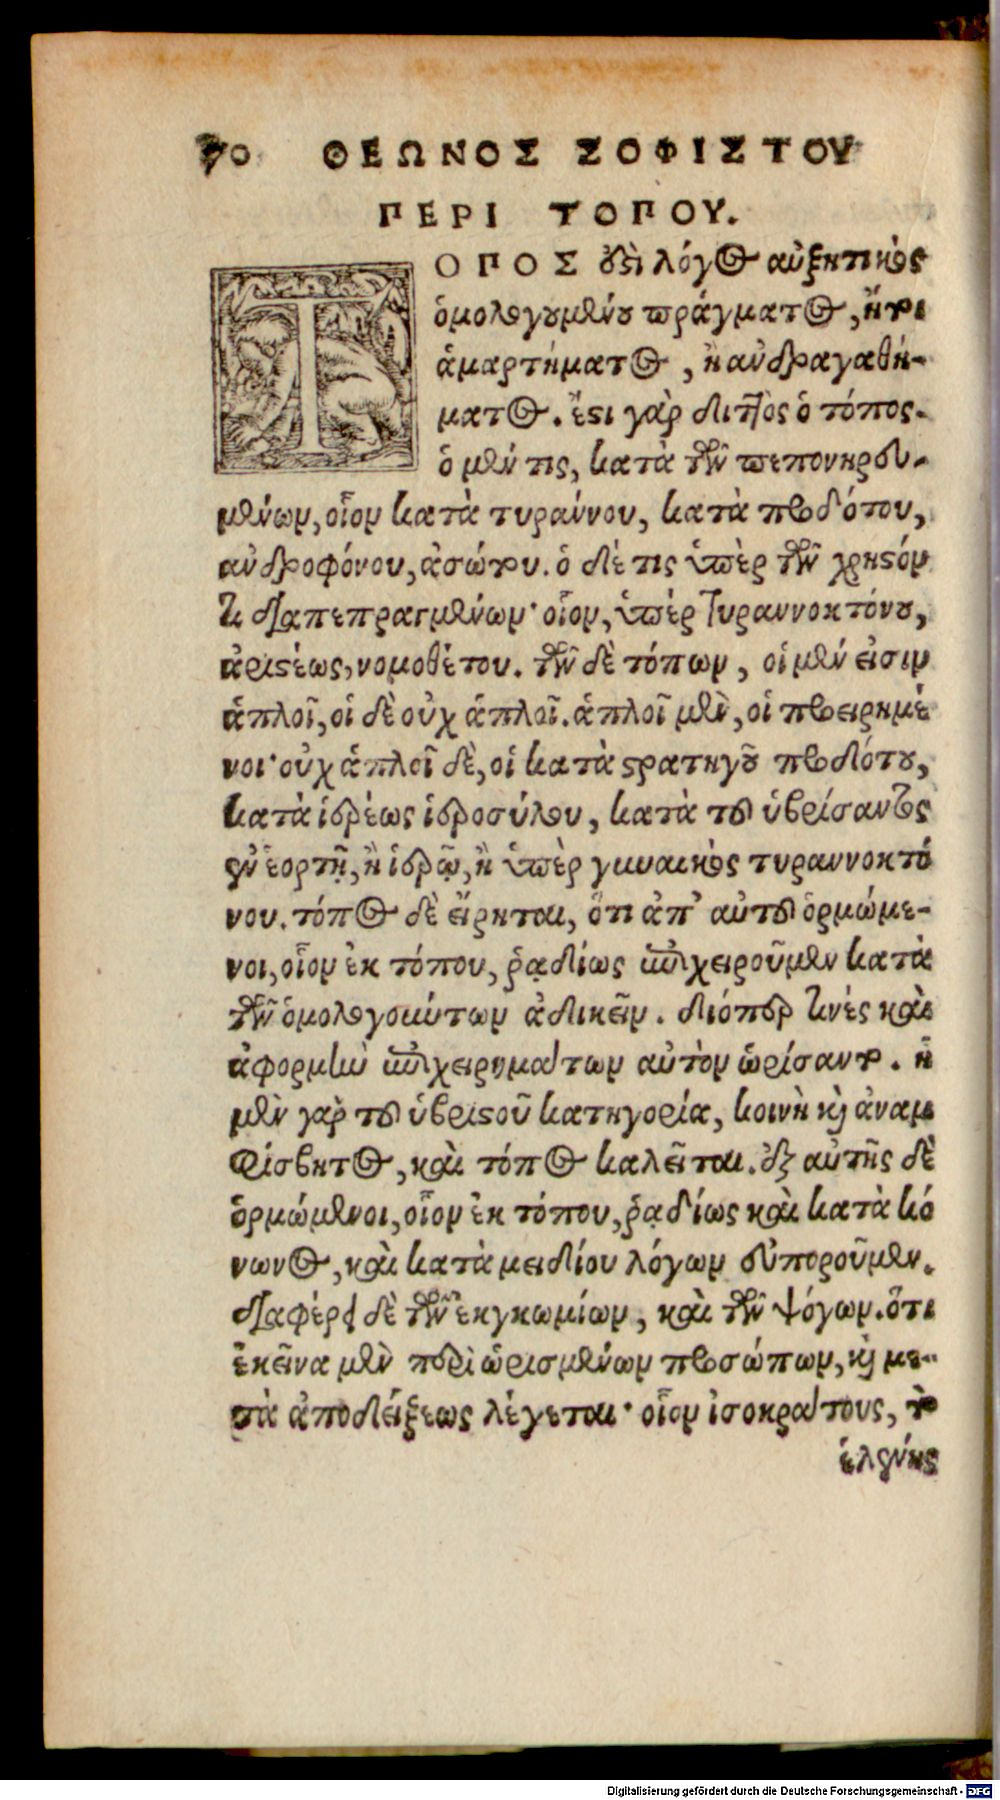 70 ΘΕΩΝΟΣ ΣΟΦΙΣΤΟΥ
ΠΕΡΙ ΤΟΠΟΥ.
ΤΟΠΟΣ ὅστι λόγος αὐξητικὸς
ὁμολογουμένου πράγματος, ἤτοι
ἁμαρτήματος, ἢ ἀνδραγαθή-
ματος. ἔστι γὰρ διττὸς ὁ τόπος.
ὁ μέν τις, κατὰ τῶν πεπονηρευ-
μένων, οἷον κατὰ τυράννου, κατὰ προδότου,
ἀνδροφόνου, ἀσώτου. ὁ δέ τις ὑπὲρ τῶν χρηστόν
τι διαπεπραγμένων· οἷον, ὑπὲρ τυραννοκτόνου,
ἀριστέως, νομοθέτου. τῶν δὲ τόπων, οἱ μέν εἰσιν
ἁπλοῖ, οἱ δὲ οὐχ ἁπλοῖ. ἁπλοῖ μὲν, οἱ προειρημέ
νοι· οὐχ ἁπλοῖ δὲ, οἱ κατὰ στρατηγοῦ προδότου,
κατὰ ἱερέως ἱεροσύλου, κατὰ τοῦ ὑβρίσαντος
ἐν ἑορτῇ, ἢ ἱερῷ, ἢ ὑπὲρ γυναικὸς τυραννοκτό
νου. τόπος δὲ εἴρηται, ὅτι ἀπ' αὐτοῦ ὁρμώμε-
νοι, οἷον ἐκ τόπου, ῥᾳδίως ἐπιχειροῦμεν κατὰ
τῶν ὁμολογούντων ἀδικεῖν. διόπερ τινὲς καὶ
ἀφορμὴν ἐπιχειρημάτων αὐτὸν ὡρίσαντο. ἡ
μὲν γὰρ τοῦ ὑβριστοῦ κατηγορία, κοινὴ καὶ ἀναμ
φίσβητος, καὶ τόπος καλεῖται. ἐξ αὐτῆς δὲ
ὁρμώμενοι, οἷον ἐκ τόπου, ῥᾳδίως καὶ κατὰ κό
νωνος, καὶ κατὰ μειδίου λόγων εὐποροῦμεν.
διαφέρει δὲ τῶν ἐκγκωμίων, καὶ τῶν ψόγων. ὅτι
ἐκεῖνα μὲν περὶ ὡρισμένων προσώπων, καὶ με-
τὰ ἀποδείξεως λέγεται· οἷον ἰσοκράτους, τὸ
ἑλένης
Digitalisierung gefördert durch die Deutsche Forschungsgemeinschaft - DFG